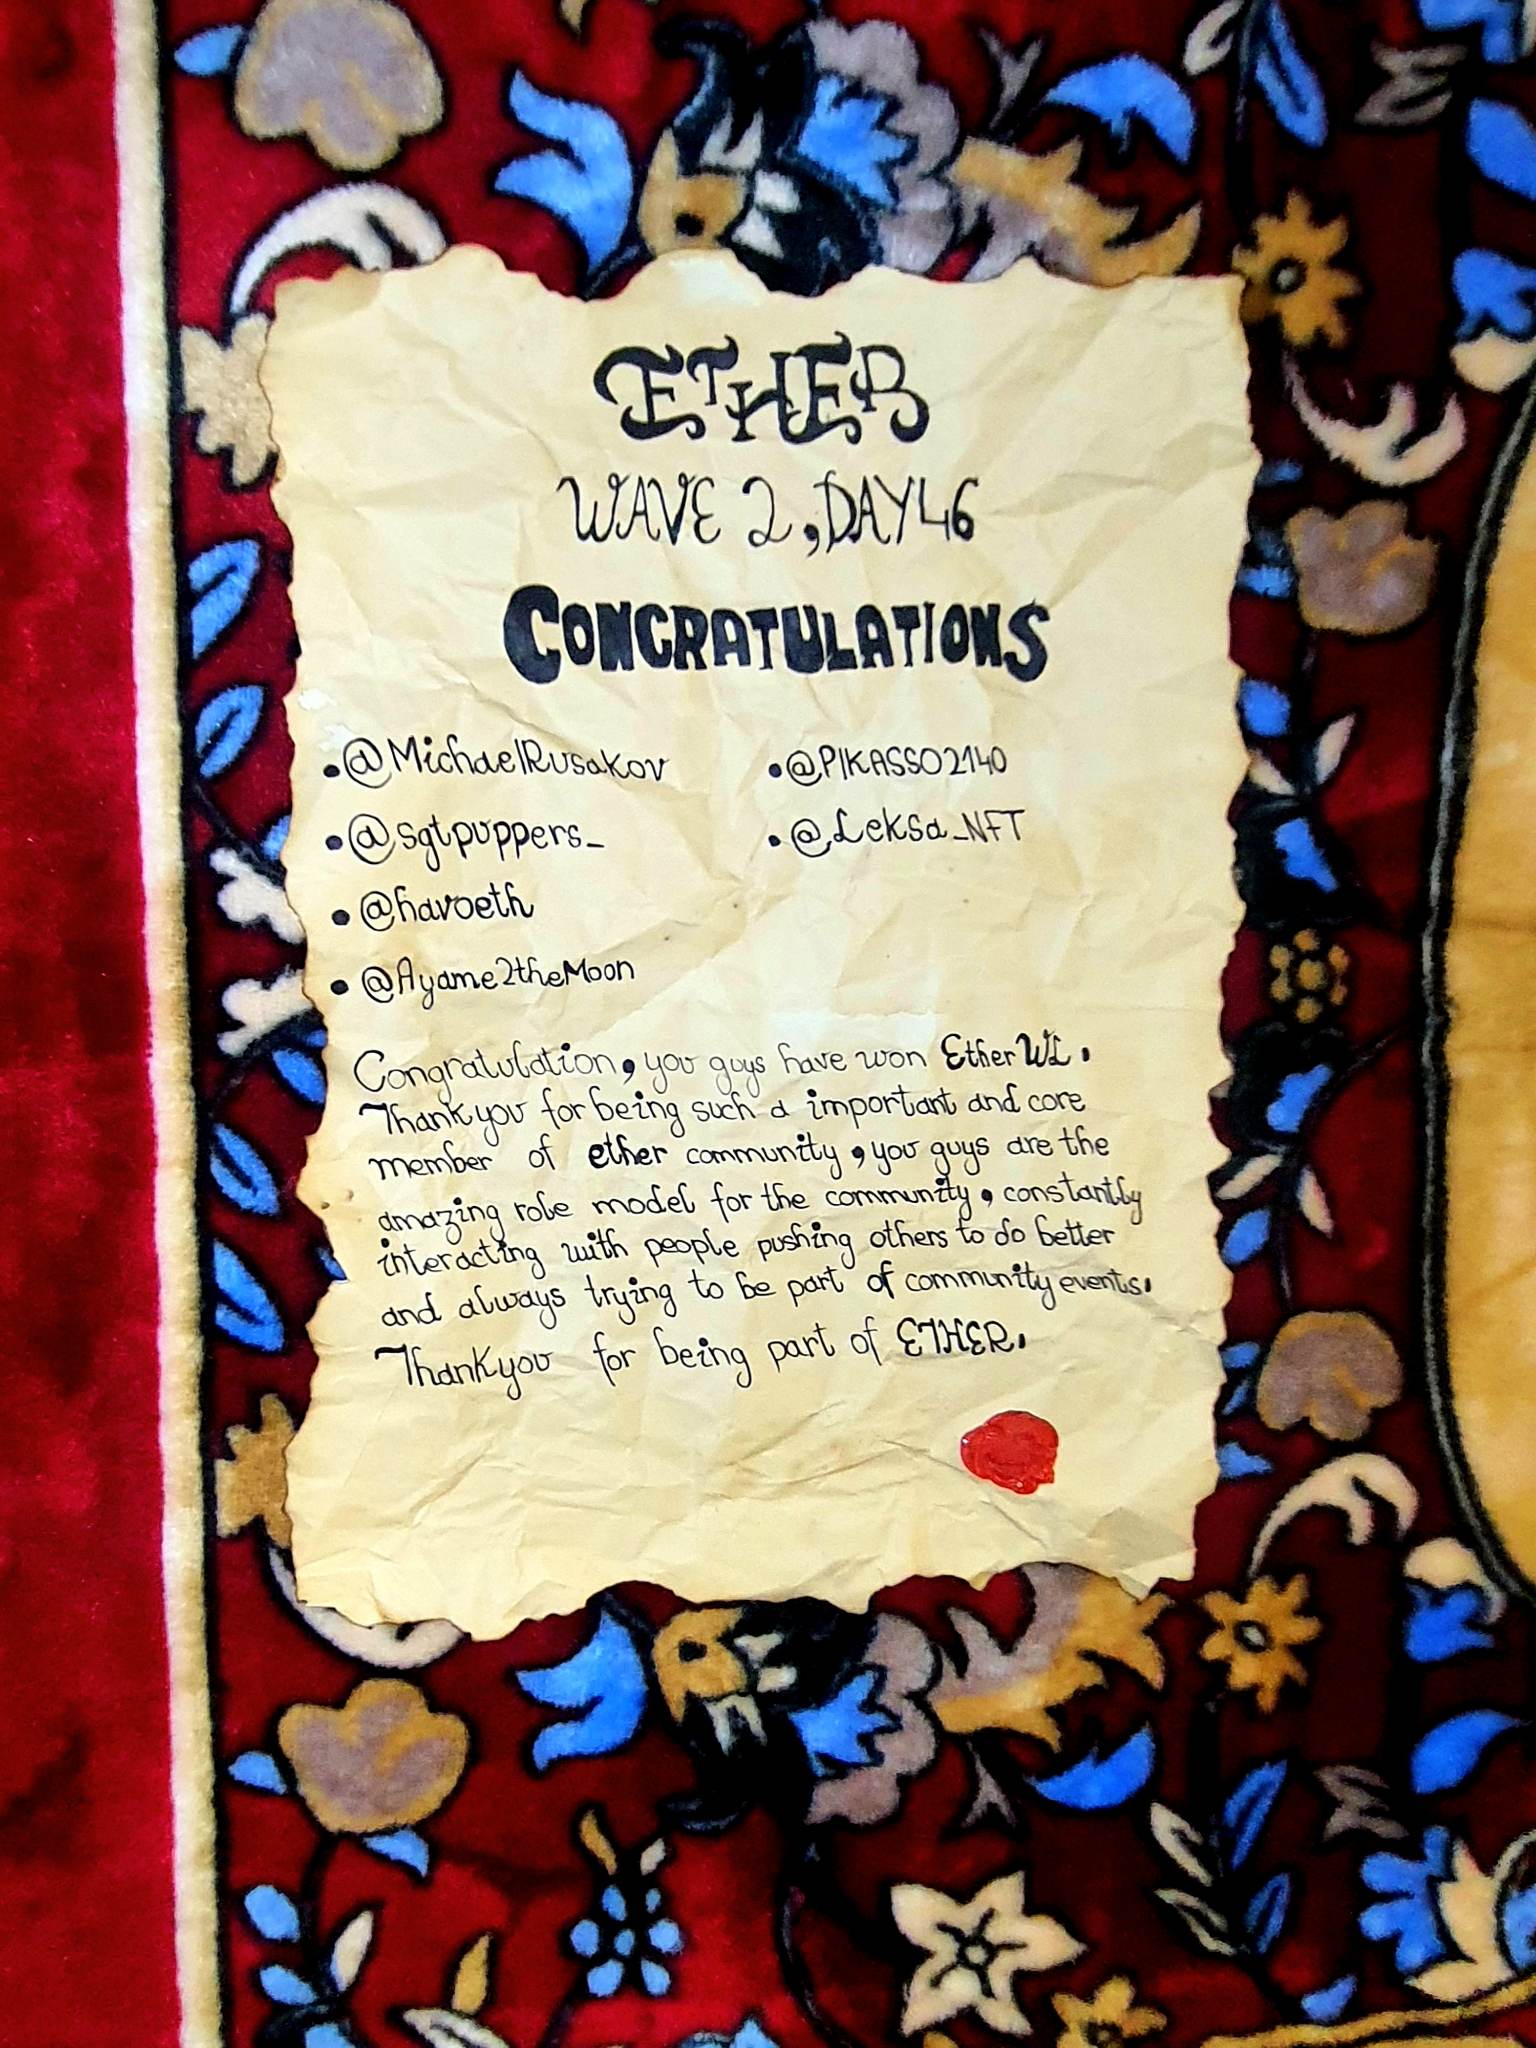 ETHER
WAVE 2, DAY 46
CONGRATULATIONS
•@MichaelRusakov
•@sgtpuppers_
•@havoeth
•@Ayame2theMoon
•@PIKASSO2140
•@Leksa_NFT
Congratulation, you guys have won Ether WL.
Thank you for being such a important and core
member of ether community, you guys are the
amazing role model for the community, constantly
interacting with people pushing others to do better
and always trying to be part of community events.
Thank you for being part of ETHER.